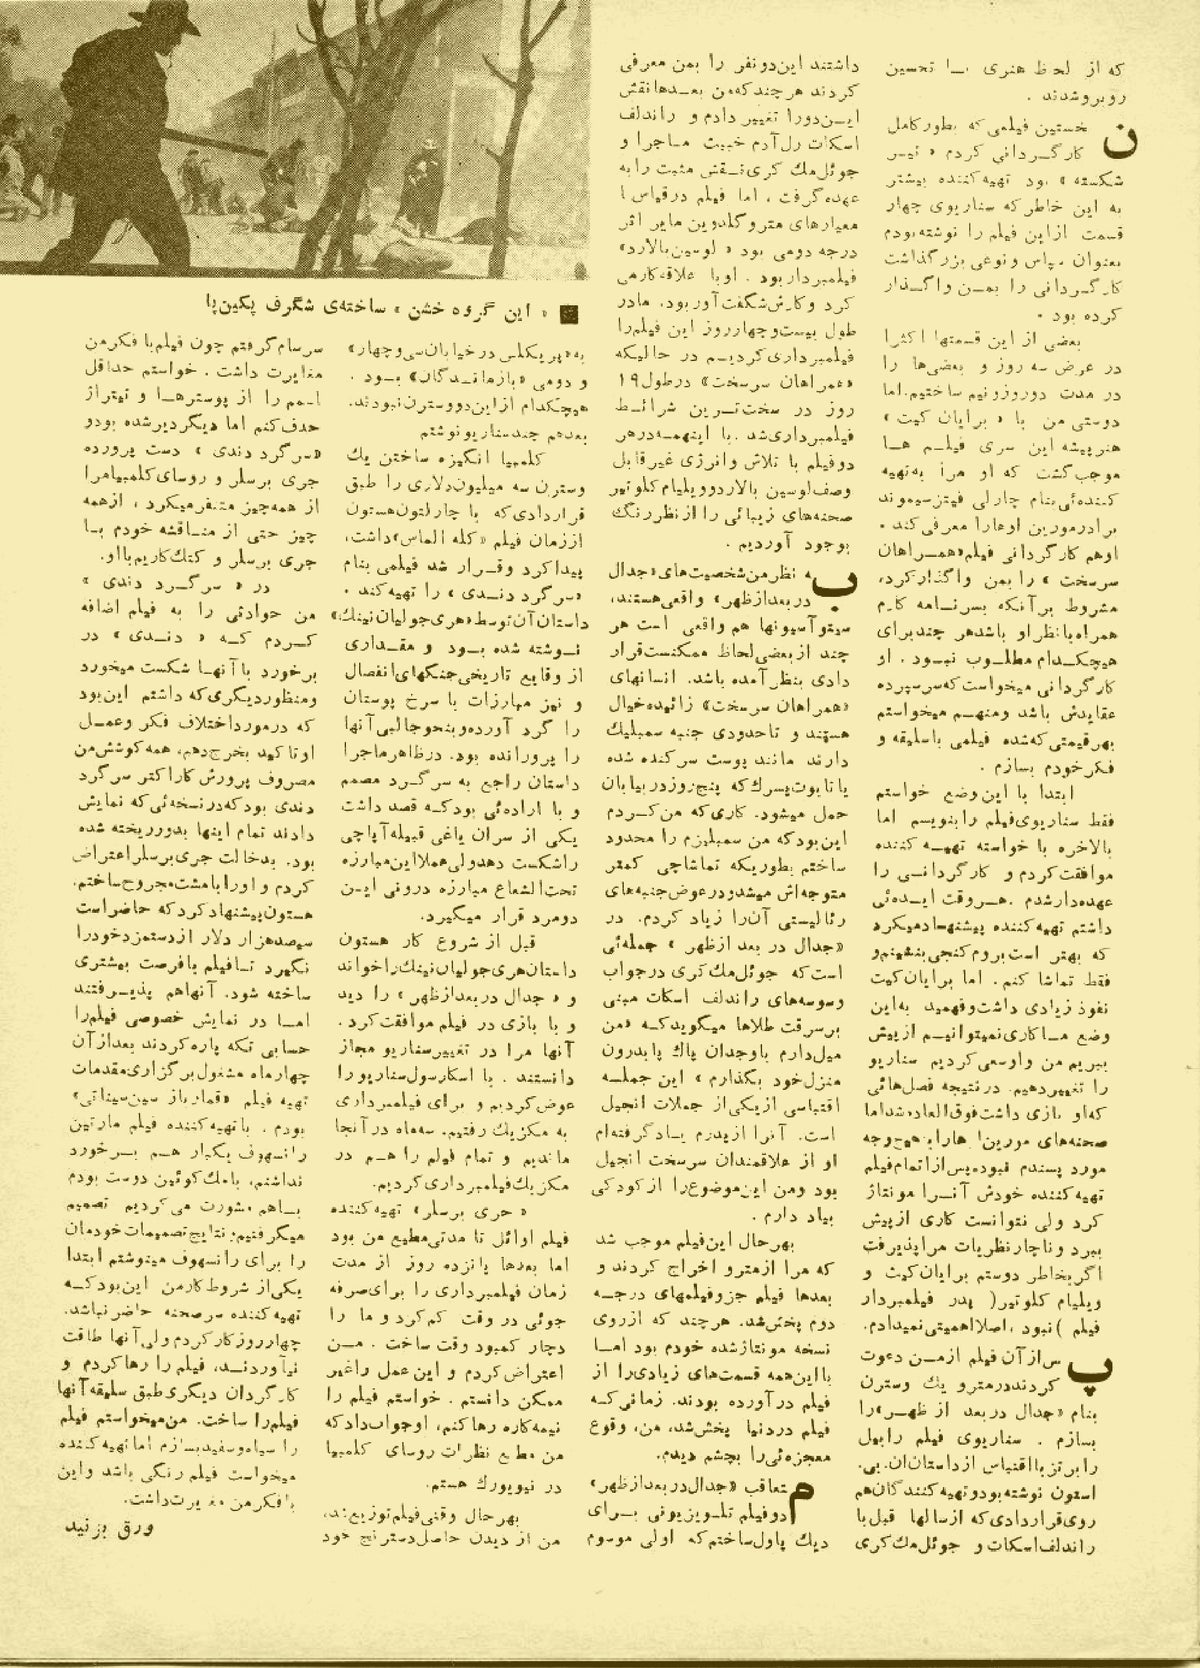 که از لحاظ هنری با تحسین
روبروشدند .
نخستین فیلمی که بطور کامل
کارگردانی کردم « تیر
شکسته » بود تهیه کننده بیشتر
به این خاطر که سناریوی چهار
قسمت ازاین فیلم را نوشته بودم
بعنوان سپاس و نوعی بزرگداشت
کارگردانی را بمن واگذار
کرده بود .
بعضی از این قسمتها اکثرا
در عرض سه روز و بعضی‌ها را
در مدت دوروزونیم ساختیم.اما
دوستی من با « برایان کیت »
هنرپیشه این سری فیلم ها
موجب گشت که او مرا به تهیه
کننده‌ئی بنام چارلی فیتزسیموند
برادرمورین اوهارا معرفی کند .
اوهم کارگردانی فیلم «همراهان
سرسخت » را بمن واگذارکرد،
مشروط برآنکه برنامه کارم
همراه بانظراو باشدهر چندبرای
هیچکدام مطلوب نبود . او
کارگردانی میخواست که سرسپرده
عقایدش باشد ومنهم میخواستم
بهرقیمتی که شده فیلمی باسلیقه و
فکرخودم بسازم .
ابتدا با این وضع خواستم
فقط سناریوی فیلم رابنویسم اما
بالاخره با خواسته تهیه کننده
موافقت کردم و کارگردانی را
عهده‌دارشدم .هروقت ایده‌ئی
داشتم تهیه کننده پیشنهادمیکرد
که بهتر است بروم کنجی بنشینم و
فقط تماشا کنم . اما برایان کیت
نفوذ زیادی داشت وفهمید به‌این
وضع ماکاری نمیتوانیم ازپیش
ببریم من واوسعی کردیم سناریو
را تغییردهیم. درنتیجه فصل‌هائی
که‌او بازی داشت فوق‌العاده شد اما
صحنه‌های مورین اوهارا به هیچ وجه
مورد پسندم نبوده پس‌از اتمام فیلم
تهیه کننده خودش آنرا مونتاژ
کرد ولی نتوانست کاری ازپیش
ببرد وناچار نظریات مرا پذیرفت
اگر بخاطر دوستم برایان کیت و
ویلیام کلوتیر( پدر فیلمبردار
فیلم )نبود ،اصلا اهمیتی نمیدادم.
پس‌ازآن فیلم ازمن دعوت
کردند در مترو یك وسترن
بنام «جدال دربعد از ظهر»را
بسازم . سناریوی فیلم رابیل
رابرتز بااقتباس ازداستان‌ان.بی.
استون نوشته بود و تهیه کنندگان هم
روی قراردادی که ازسالها قبل با
راندلف اسکات و جوئل مك کری
داشتند این‌دو نفر را بمن معرفی
کردند هرچند که من بعدها نقش
این‌دورا تغییر دادم و راندلف
اسکات رل آدم خبیث ماجرا و
جوئل مك کری نقش مثبت را به
عهده گرفت ، اما فیلم درقیاس با
معیارهای مترو گلدوین مایر اثر
درجه دومی بود « لوسین بالارد»
فیلمبردار بود . اوبا علاقه کار می
کرد وکارش شگفت‌آور بود. مادر
طول بیست‌وچهارروز این فیلم را
فیلمبرداری کردیم در حالیکه
«همراهان سرسخت» درطول ۱۹
روز در سخت‌ترین شرائط
فیلمبرداری شد .با اینهمه درهر
دوفیلم با تلاش وانرژی غیرقابل
وصف لوسین بالارد وویلیام کلوتیر
صحنه‌های زیبائی را ازنظر رنگ
بوجود آوردیم .
به نظر من شخصیت‌های «جدال
در بعدازظهر» واقعی هستند،
سیتوآسیونها هم واقعی است هر
چند از بعضی لحاظ ممکنست قرار
دادی بنظر آمده باشد. انسانهای
«همراهان سرسخت» زائیده خیال
هستند و تاحدودی جنبه سمبلیك
دارند مانند پوست سرکنده شده
یا تابوت پسرك که پنج روز در بیابان
حمل میشود. کاری که من کردم
این بود که من سمبلیزم را محدود
ساختم بطوریکه تماشاچی کمتر
متوجه‌اش میشد و در عوض جنبه‌های
رئالیستی آن را زیاد کردم. در
«جدال در بعد ازظهر » جمله‌ئی
است که جوئل مك کری درجواب
وسوسه‌های راندلف اسکات مبنی
برسرقت طلاها میگوید که «من
میل دارم باوجدان پاك پا بدرون
منزل خود بگذارم » این جمله
اقتباسی ازیکی از جملات انجیل
است. آنرا ازپدرم یاد گرفته‌ام
او از علاقمندان سرسخت انجیل
بود ومن این موضوع را از کودکی
بیاد دارم .
بهرحال این فیلم موجب شد
که مرا ازمترو اخراج کردند و
بعدها فیلم جزوفیلمهای درجه
دوم پخش شد. هرچند که ازروی
نسخه مونتاژ شده خودم بود اما
بااین همه قسمت‌های زیادی را از
فیلم درآورده بودند. زمانی که
فیلم دردنیا پخش شد، من، وقوع
معجزه‌ئی را بچشم دیدم.
متعاقب «جدال در بعدازظهر»
دوفیلم تلویزیونی برای
دیك پاول ساختم که اولی موسوم
« این گروه خشن » ساخته‌ی شگرف پکین‌پا
به «پریکلس در خیابان سی‌وچهار»
و دومی «بازماندگان» بود .
هیچکدام از این دو وسترن نبودند.
بعدهم چند سناریو نوشتم
کلمبیا انگیزه ساختن یك
وسترن سه میلیون دلاری را طبق
قراردادی که با چارلتون هستون
اززمان فیلم «کله الماس» داشت،
پیدا کرد وقرار شد فیلمی بنام
«سرگرد دندی » را تهیه کند .
داستان آن توسط «هری جولیان نینك»
نوشته شده بود و مقداری
از وقایع تاریخی جنگهای انفصال
و نیز مبارزات با سرخ پوستان
را گرد آورده و بنحو جالبی آنها
را پرورانده بود. درظاهر ماجرا
داستان راجع به سرگرد مصمم
و با اراده‌ئی بود که قصد داشت
یکی از سران یاغی قبیله آپاچی
را شکست دهد ولی عملا این مبارزه
تحت‌الشعاع مبارزه درونی این
دومرد قرار میگیرد.
قبل از شروع کار هستون
داستان هری جولیان نینك را خواند
و « جدال در بعدازظهر » را دید
و با بازی در فیلم موافقت کرد .
آنها مرا در تغییر سناریو مجاز
دانستند . با اسکار سول سناریو را
عوض کردیم و برای فیلمبرداری
به مکزیك رفتیم. سه ماه در آنجا
ماندیم و تمام فیلم را هم در
مکزیك فیلمبرداری کردیم.
« جری برسلر» تهیه کننده
فیلم اوائل تا مدتی مطیع من بود
اما بعدها پانزده روز از مدت
زمان فیلمبرداری را برای صرفه
جوئی در وقت کم کرد و ما را
دچار کمبود وقت ساخت . من
اعتراض کردم و این عمل را غیر
ممکن دانستم . خواستم فیلم را
نیمه کاره رها کنم، او جواب داد که
من مطیع نظرات روسای کلمبیا
در نیویورك هستم.
بهر حال وقتی فیلم توزیع شد،
من از دیدن حاصل دسترنج خود
سرسام گرفتم چون فیلم با فکر من
مغایرت داشت . خواستم حداقل
اسمم را از پوسترها و تیتراژ
حذف کنم اما دیگر دیر شده بود و
«سرگرد دندی » دست پرورده
جری برسلر و روسای کلمبیا مرا
از همه چیز متنفر میکرد ، از همه
چیز حتی از مناقشه خودم با
جری برسلر و کتك کاریم با او.
در « سرگرد دندی »
من حوادثی را به فیلم اضافه
کردم که « دندی » در
برخورد با آنها شکست میخورد
ومنظور دیگری که داشتم این بود
که درمورد اختلاف فکر وعمل
او تاکید بخرج دهم، همه کوشش من
مصروف پرورش کاراکتر سرگرد
دندی بود که در نسخه‌ئی که نمایش
دادند تمام اینها بدور ریخته شده
بود. بدخالت جری برسلر اعتراض
کردم و او را با مشت مجروح ساختم.
هستون پیشنهاد کرد که حاضر است
سیصد هزار دلار از دستمزد خود را
نگیرد تا فیلم با فرصت بیشتری
ساخته شود. آنها هم پذیرفتند
اما در نمایش خصوصی فیلم را
حسابی تکه پاره کردند بعد از آن
چهار ماه مشغول برگزاری مقدمات
تهیه فیلم «قمار باز سین سیناتی»
بودم . با تهیه کننده فیلم مارتین
رانسهوف یکبار هم برخورد
نداشتم، بامك کوئین دوست بودم
باهم مشورت می کردیم تصمیم
میگرفتیم و نتایج تصمیمات خودمان
را برای رانسهوف مینوشتم ابتدا
یکی از شروط کار من این بود که
تهیه کننده سر صحنه حاضر نباشد.
چهار روز کار کردم ولی آنها طاقت
نیاوردند، فیلم را رها کردم و
کارگردان دیگری طبق سلیقه آنها
فیلم را ساخت. من میخواستم فیلم
را سیاه و سفید بسازم اما تهیه کننده
میخواست فیلم رنگی باشد و این
با فکر من مغایرت داشت.
ورق بزنید